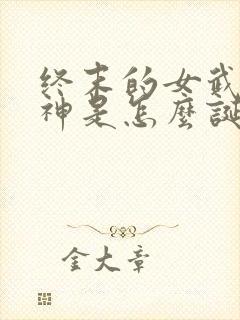 終末的女武
神是怎麼誕
金大章